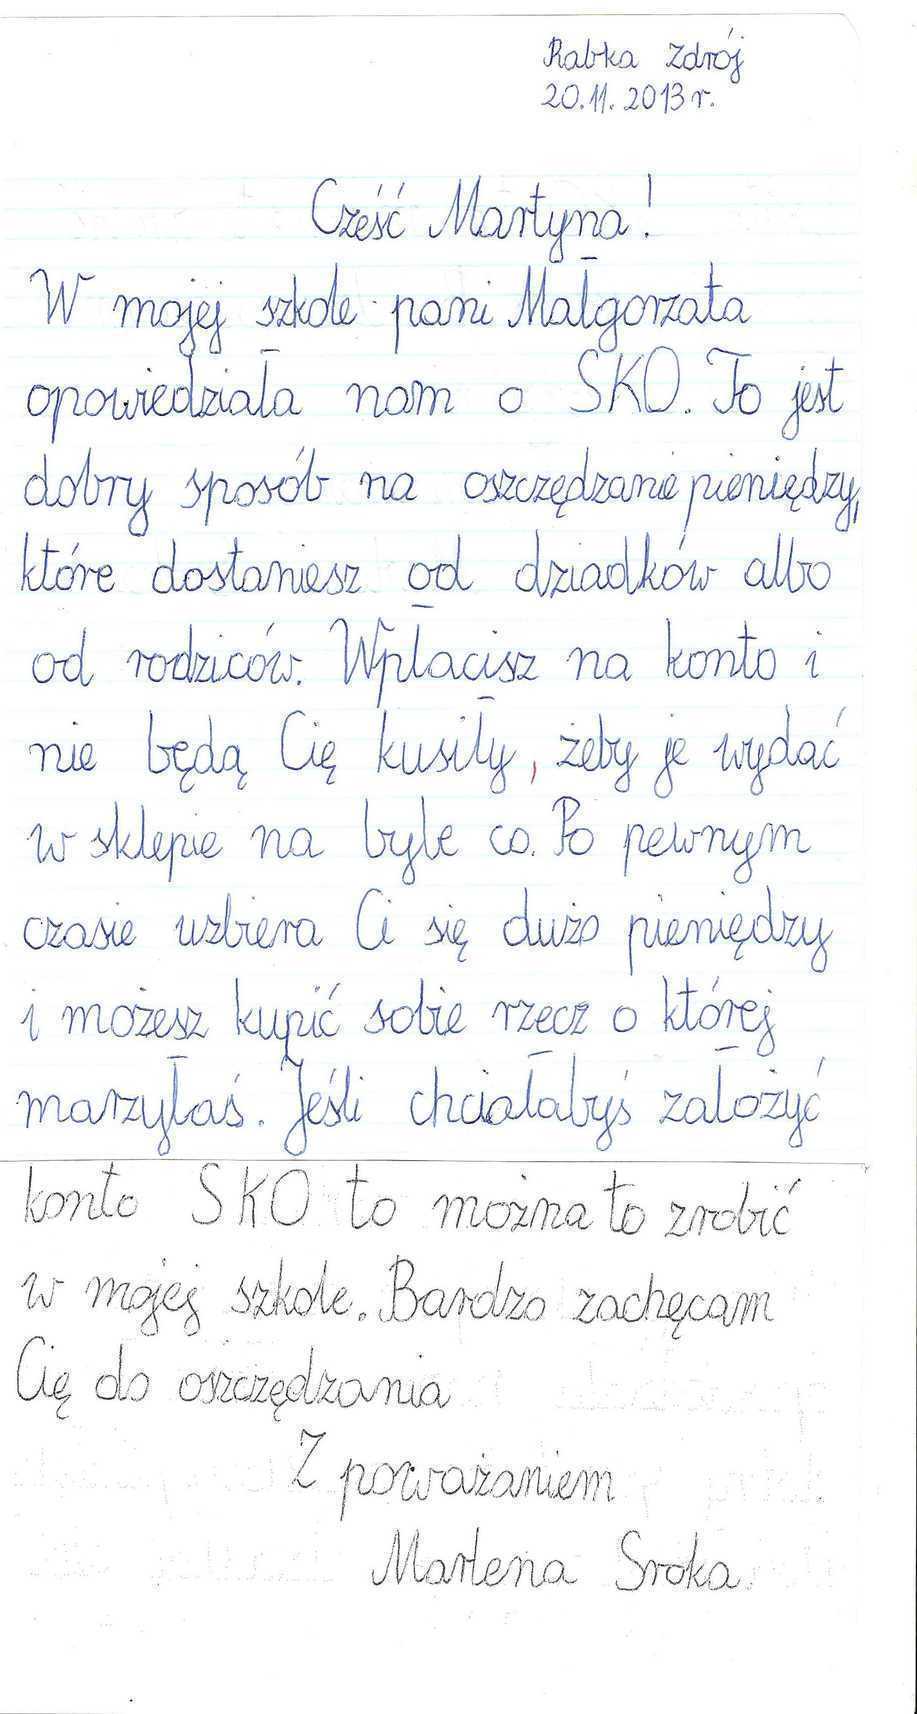 Rabka Zdrój
20.11.2013 r.
Cześć Martyna!
W mojej szkole pani Małgorzata
opowiedziała nam o SKO. To jest
dobry sposób na oszczędzanie pieniędzy,
które dostaniesz od dziadków albo
od rodziców. Wpłacisz na konto i
nie będą Cię kusiły, żeby je wydać
w sklepie na byle co. Po pewnym
czasie uzbiera Ci się dużo pieniędzy
i możesz kupić sobie rzecz o której
marzyłaś. Jeśli chciałabyś założyć
konto SKO to można to zrobić
w mojej szkole. Bardzo zachęcam
Cię do oszczędzania
Z poważaniem
Marlena Sroka